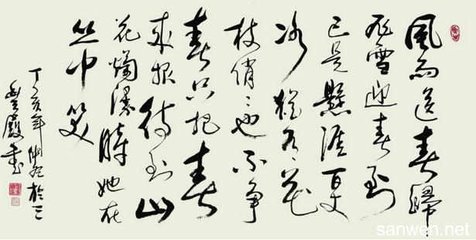 風雨送春歸
飛雪迎春到
已是懸崖百丈
冰猶有花
枝俏〻也不争
春只把春
来報待到山
花爛漫時她在
丛中笑
丁亥年於
sanwen.net